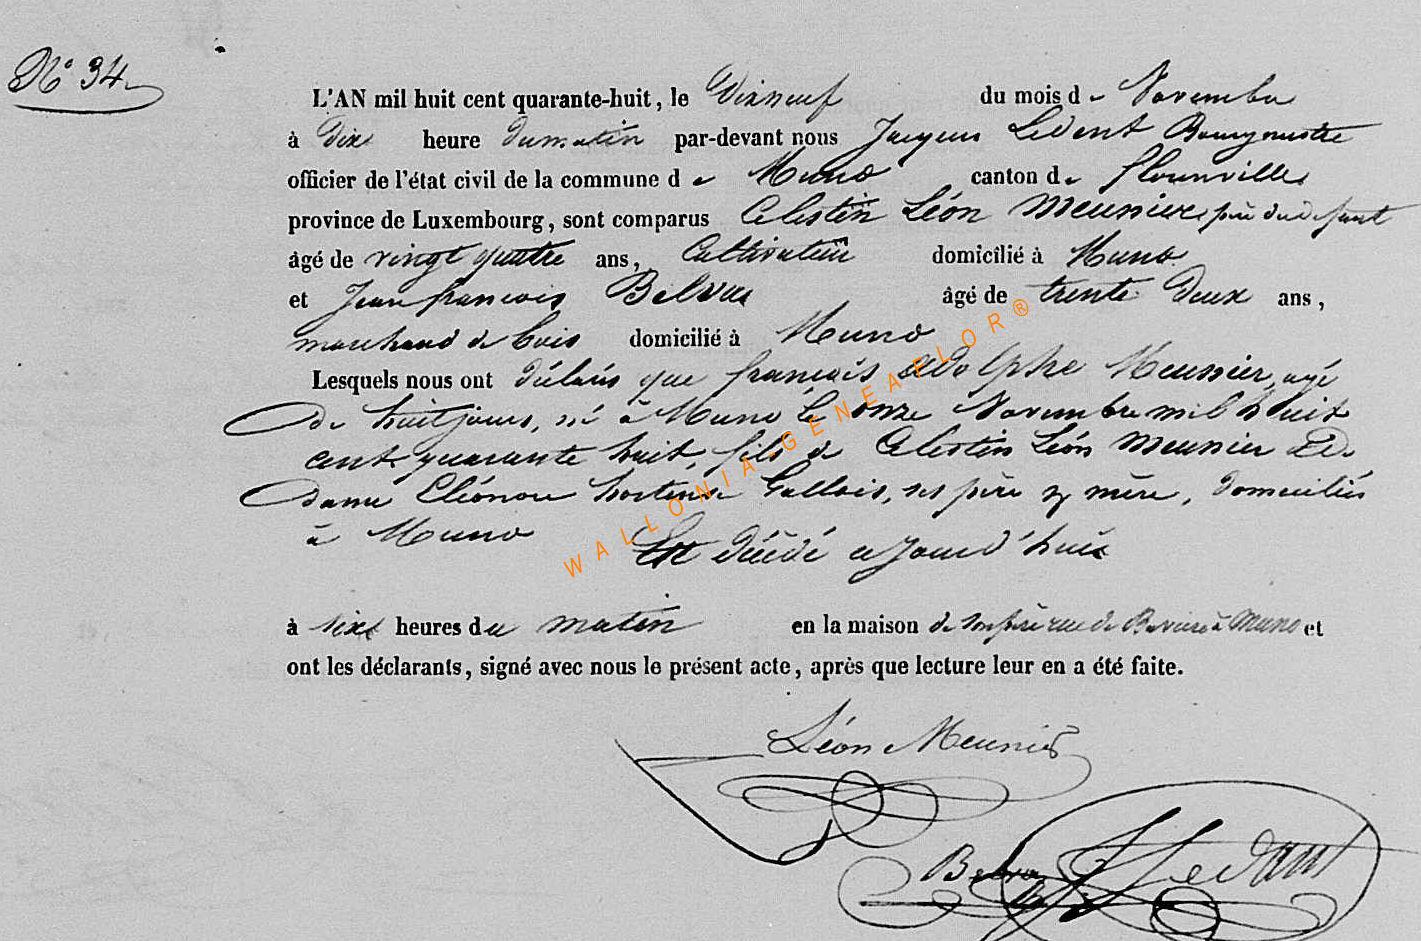 N° 34
L'AN mil huit cent quarante-huit, le Dixneuf du mois de Novembre
à Dix heure du matin par-devant nous Jacques Ledent Bourgmestre
officier de l'état civil de la commune de Muno canton de florenville
province de Luxembourg, sont comparus Celestin Léon Meunier père du defunt
âgé de vingt quatre ans, Cultivateur domicilié à Muno
et Jean françois Belvue âgé de trente Deux ans,
marchand de bois domicilié à Muno
Lesquels nous ont déclaré que françois adolphe Meunier, agé
de huit jours, né à Muno le onze Novembre mil huit
cent quarante huit, fils de Celestin Léon Meunier et de
dame Eléonore hortense Gallois, ses père & mère, domiciliés
à Muno Est décédé ce jourd'huis
à six heures du matin en la maison de son père rue de à Muno et
ont les déclarants, signé avec nous le présent acte, après que lecture leur en a été faite.
Léon Meunier
Ledent
WALLONIA-GENEAFLOR®